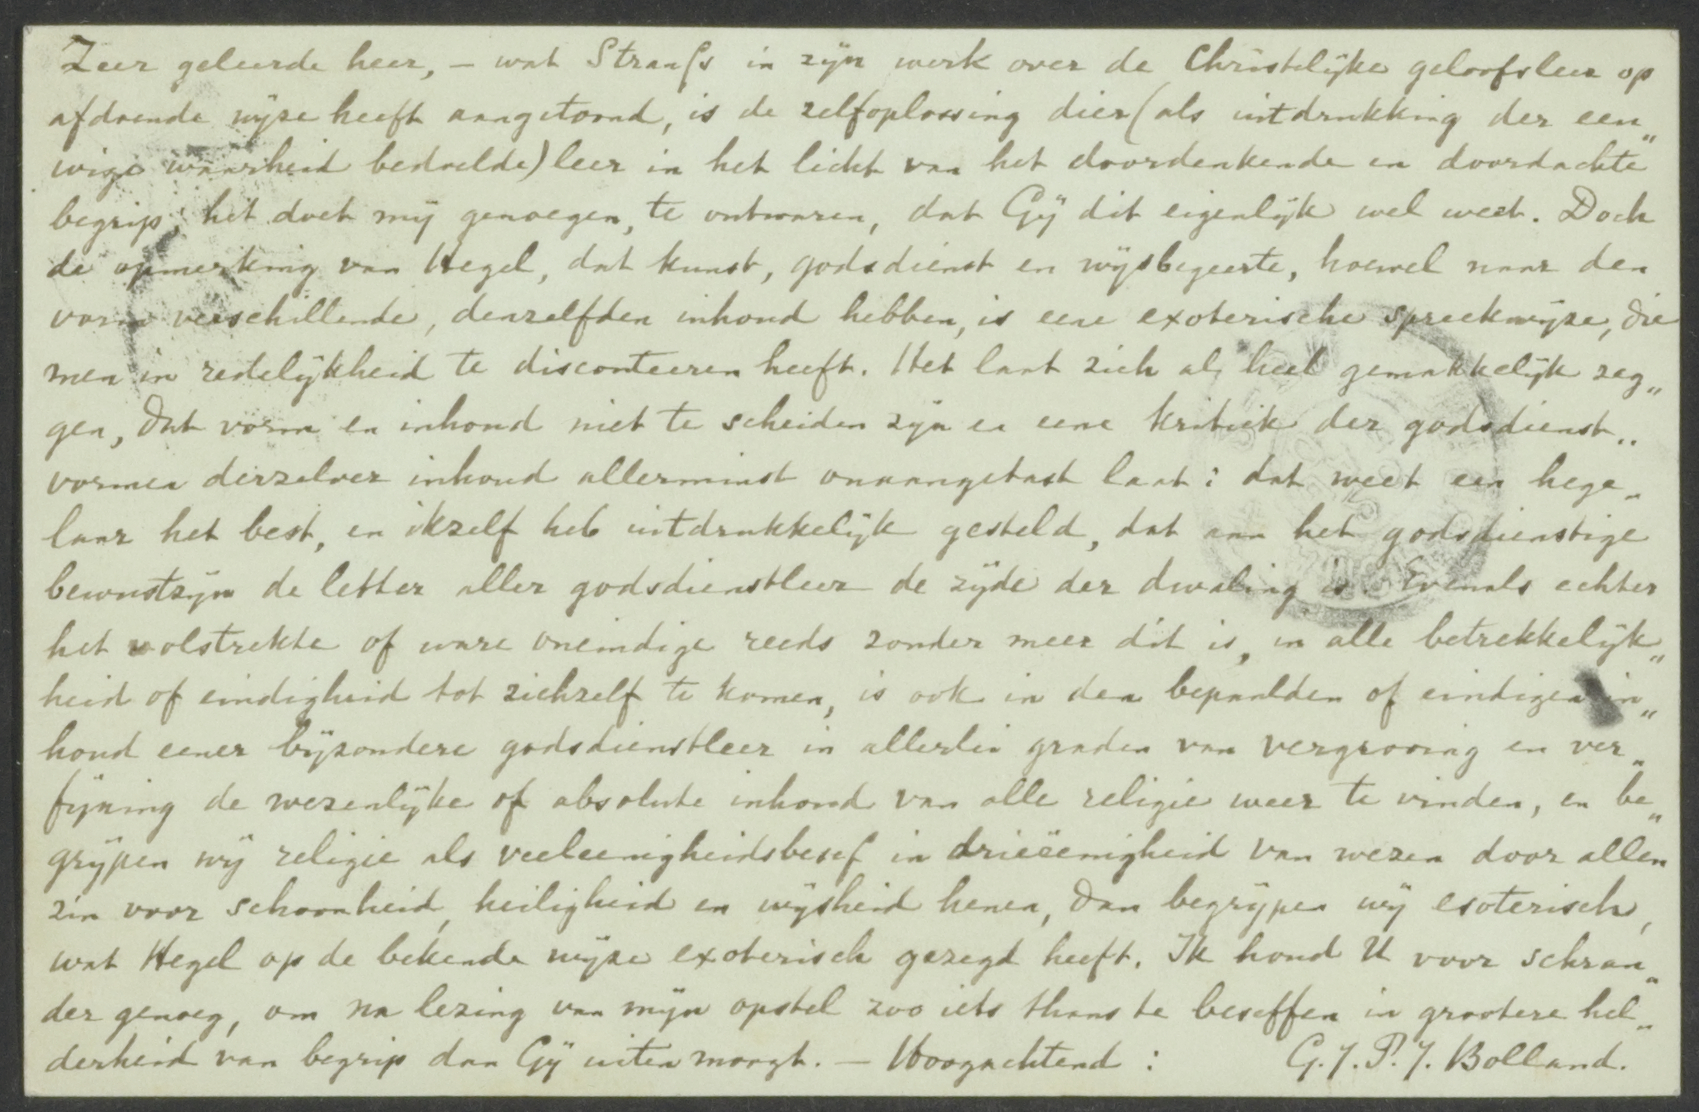 Zeer geleerde heer, – wat Strauſs in zijn werk over de Christelijke geloofsleer op
afdoende wijze heeft aangetoond, is de zelfoplossing dier (als uitdrukking der eeu„
wige waarheid bedoelde) leer in het licht van het doordenkende en doordachte
begrip; het doet mij genoegen, te ontwaren, dat Gij dit eigenlijk wel weet. Doch
de opmerking van Hegel, dat kunst, godsdienst en wijsbegeerte, hoewel naar den
vorm verschillende, denzelfden inhoud hebben, is eene exoterische spreekwijze, die
men in redelijkheid te disconteeren heeft. Het laat zich al heel gemakkelijk zeg„
gen, dat vorm en inhoud niet te scheiden zijn en eene kritiek der godsdienst„
vormen derzelver inhoud allerminst onaangetast laat: dat weet een hege„
laar het best, en ikzelf heb uitdrukkelijk gesteld, dat aan het godsdienstige
bewustzijn de letter aller godsdienstleer de zijde der dwaling is. Evenals echter
het volstrekte of ware oneindige reeds zonder meer dit is, in alle betrekkelijk„
heid of eindigheid tot zichzelf te komen, is ook in den bepaalden of eindigen in„
houd eener bijzondere godsdienstleer in allerlei graden van vergrooving en ver„
fijning de wezenlijke of absolute inhoud van alle religie weer te vinden, en be„
grijpen wij religie als veeleenigheidsbesef in drieëenigheid van wezen door allen
zin voor schoonheid, heiligheid en wijsheid henen, dan begrijpen wij esoterisch,
wat Hegel op de bekende wijze exoterisch gezegd heeft. Ik houd U voor schran„
der genoeg, om na lezing van mijn opstel zoo iets thans te beseffen in grootere hel„
derheid van begrip dan Gij uiten moogt. – Hoogachtend: G. J. P. J. Bolland.